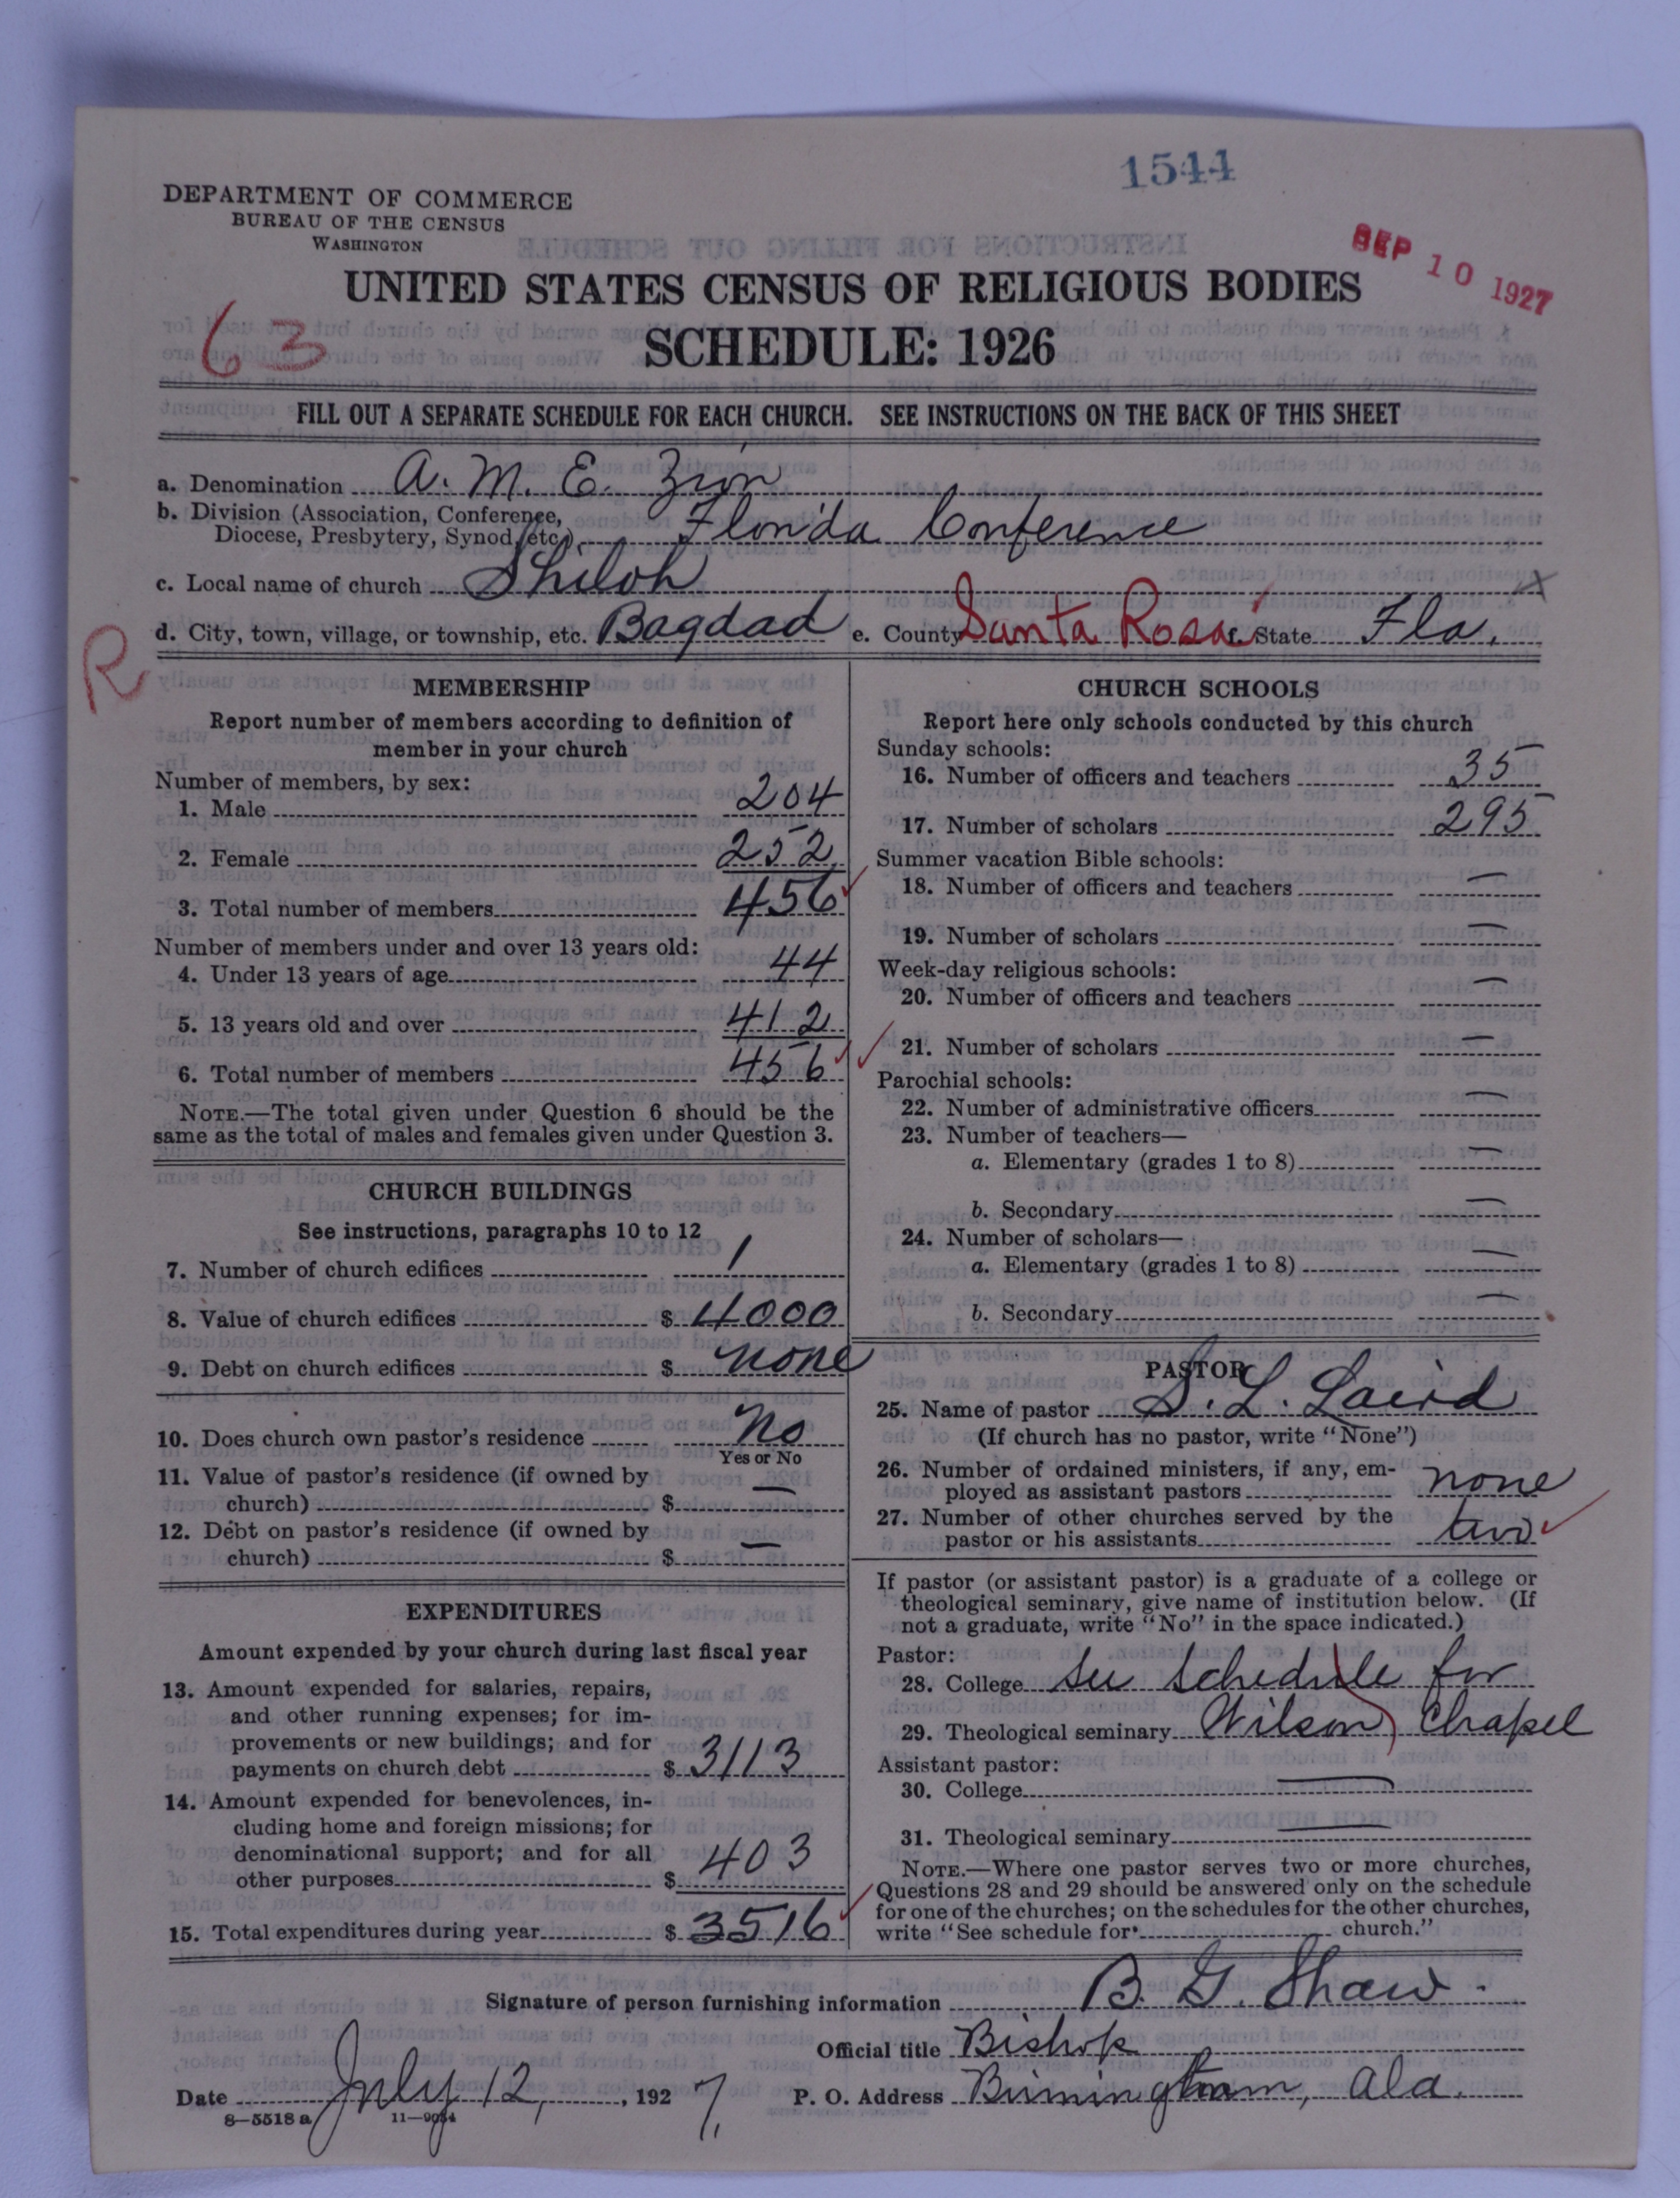 1544
DEPARTMENT OF COMMERCE
BUREAU OF THE CENSUS
WASHINGTON
SEP 10 1927
UNITED STATES CENSUS OF RELIGIOUS BODIES
63
SCHEDULE: 1926
FILL OUT A SEPARATE SCHEDULE FOR EACH CHURCH. SEE INSTRUCTIONS ON THE BACK OF THIS SHEET
a. Denomination A. M. E. Zion
b. Division (Association, Conference,
Diocese, Presbytery, Synod, etc.) Florida Conference
c. Local name of church Shiloh
R
d. City, town, village, or township, etc. Bagdad e. County Santa Rosa f. State Fla.
MEMBERSHIP
Report number of members according to definition of
member in your church
Number of members, by sex:
1. Male 204
2. Female 252
3. Total number of members 456
Number of members under and over 13 years old:
4. Under 13 years of age 44
5. 13 years old and over 412
6. Total number of members 456
NOTE.—The total given under Question 6 should be the
same as the total of males and females given under Question 3.
CHURCH BUILDINGS
See instructions, paragraphs 10 to 12
7. Number of church edifices 1
8. Value of church edifices $ 4000
9. Debt on church edifices $ none
10. Does church own pastor's residence No
Yes or No
11. Value of pastor's residence (if owned by
church) $ —
12. Debt on pastor's residence (if owned by
church) $ —
EXPENDITURES
Amount expended by your church during last fiscal year
13. Amount expended for salaries, repairs,
and other running expenses; for im-
provements or new buildings; and for
payments on church debt $ 3113
14. Amount expended for benevolences, in-
cluding home and foreign missions; for
denominational support; and for all
other purposes $ 403
15. Total expenditures during year $ 3516
CHURCH SCHOOLS
Report here only schools conducted by this church
Sunday schools:
16. Number of officers and teachers 35
17. Number of scholars 295
Summer vacation Bible schools:
18. Number of officers and teachers —
19. Number of scholars —
Week-day religious schools:
20. Number of officers and teachers —
21. Number of scholars —
Parochial schools:
22. Number of administrative officers —
23. Number of teachers—
a. Elementary (grades 1 to 8) —
b. Secondary —
24. Number of scholars—
a. Elementary (grades 1 to 8) —
b. Secondary —
PASTOR
25. Name of pastor S. L. Laird
(If church has no pastor, write "None")
26. Number of ordained ministers, if any, em-
ployed as assistant pastors none
27. Number of other churches served by the
pastor or his assistants two
If pastor (or assistant pastor) is a graduate of a college or
theological seminary, give name of institution below. (If
not a graduate, write "No" in the space indicated.)
Pastor:
28. College See schedule for
29. Theological seminary Wilson Chapel
Assistant pastor:
30. College —
31. Theological seminary —
NOTE.—Where one pastor serves two or more churches,
Questions 28 and 29 should be answered only on the schedule
for one of the churches; on the schedules for the other churches,
write "See schedule for church."
Signature of person furnishing information B. G. Shaw.
Official title Bishop
Date July 12, 1927. P. O. Address Birmingham, Ala.
8—5518 a 11—9054